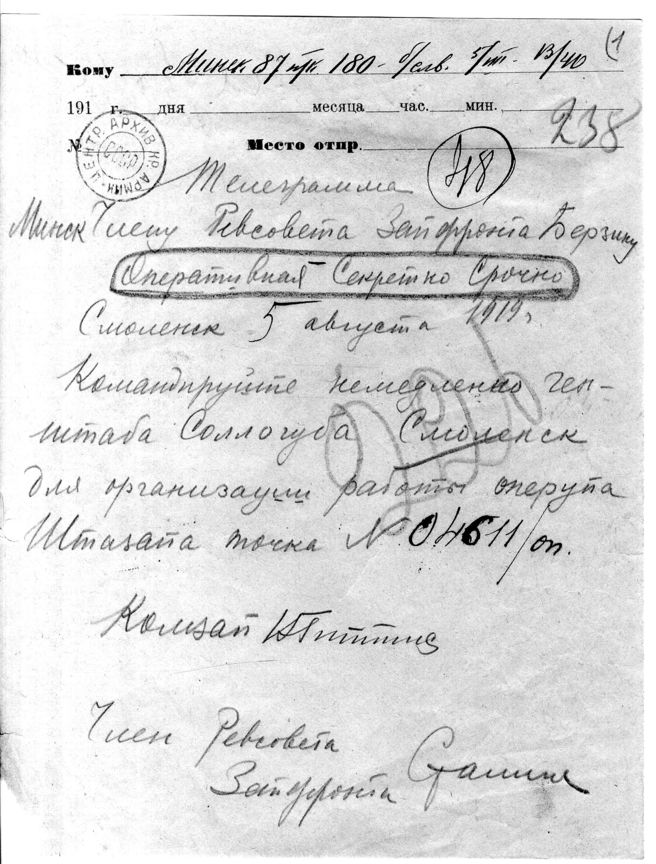 (1
Кому Минск 87 180 - 5/III - 13/40
191 г. дня месяца час. мин.
238
№ Место отпр.
ЦЕНТР. АРХИВ КР. АРМИИ
СССР
Телеграмма
Минск Члену Ревсовета Запфронта Берзину
Оперативная Секретно Срочно
Смоленск 5 августа 1919 г
Командируйте немедленно ген-
штаба Соллогуба Смоленск
для организации работы оперупа
Штазапа точка N 04611/оп.
Комзап
Член Ревсовета
Запфронта Сталин